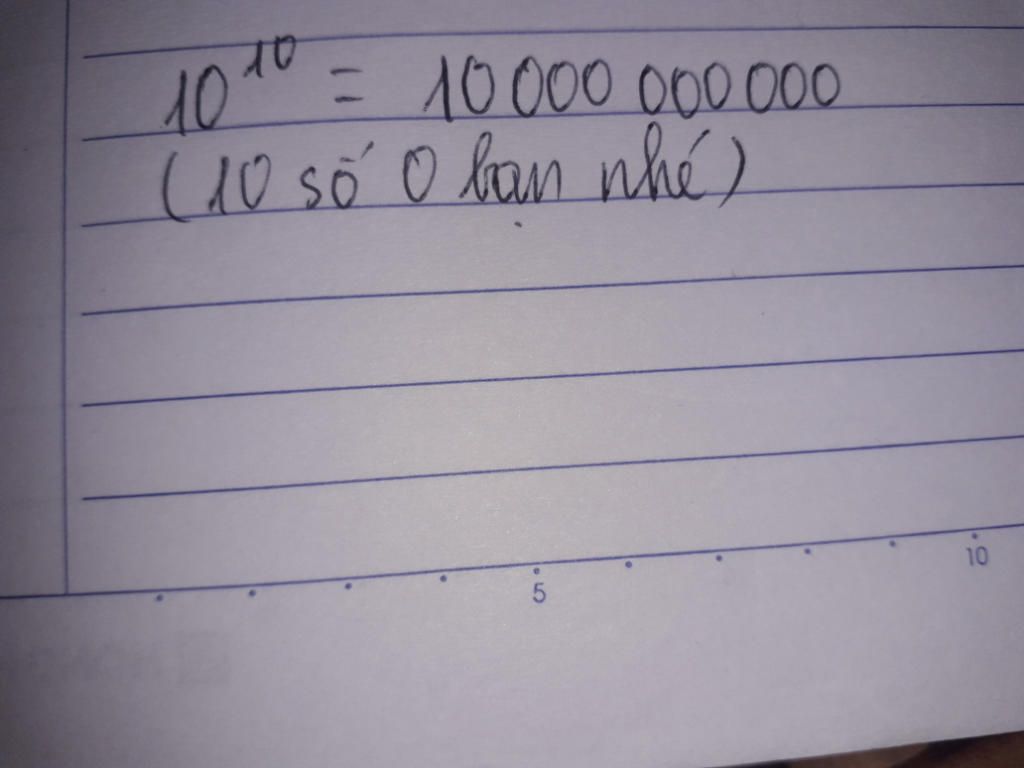 10^10 = 10 000 000 000
(10 số 0 bạn nhé)
5 10